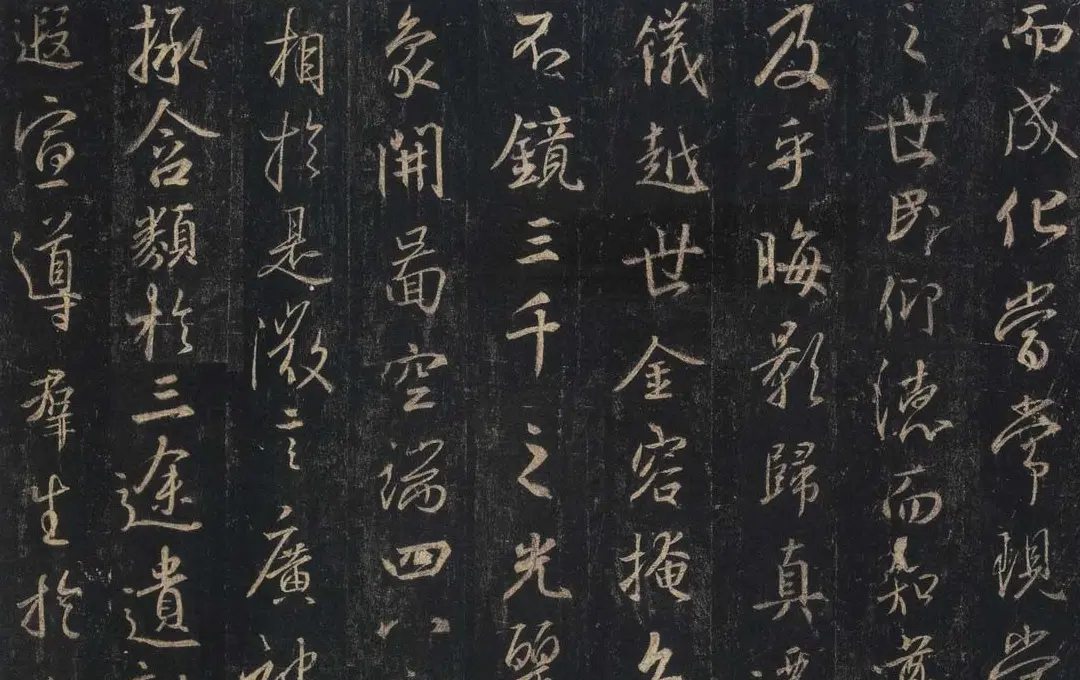 而成化當常現常
之世民仰德而知遵
及乎晦影歸真遷
儀越世金容掩色
不鏡三千之光麗
象開圖空端四八
相於是微言廣被
拯含類於三途遺
遐宣導羣生於